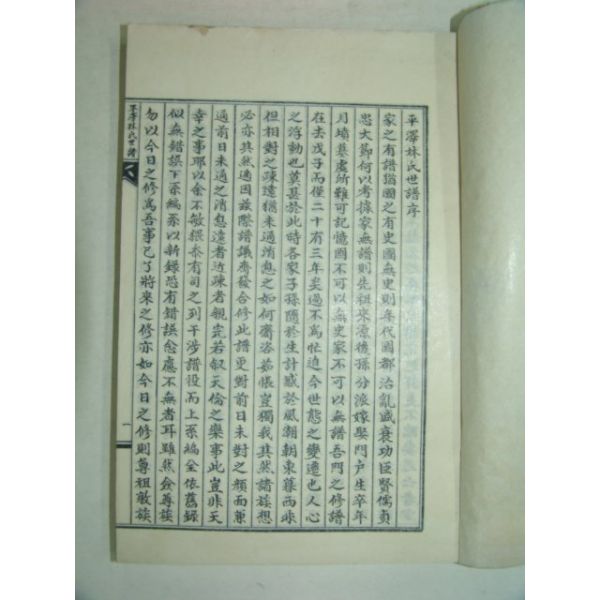 平澤林氏世譜序
家之有譜猶國之有史國無史則年代國都治亂盛衰功臣賢儒貞
忠大節何以考據家無譜則先祖來源後孫分派嫁娶門戶生卒年
月墳墓處所難可記憶國不可以無史家不可以無譜吾門之修譜
在去戊子而僅二十有三年矣過不爲忙迫今世態之變遷也人心
之浮動也莫甚於此時各家子孫隨於生計惑於風潮朝東暮西非
但相對之疎遠猶未通消息之如何齎咨茹悵豈獨我其然諸族想
必亦其然適因玆際譜議齊發合修此譜更對前日未對之顔面更
通前日未通之消息遠者近疎者親完若叙天倫之樂事此豈非天
幸之事耶以余不敏猥忝有司之列干涉譜役而上系編全依舊錄
似無錯誤下系編系以新錄恐有錯誤愈應不無者耳雖然僉尊族
勿以今日之修爲吾事已了將來之修亦如今日之修則尊祖敬族
平澤林氏世譜
一